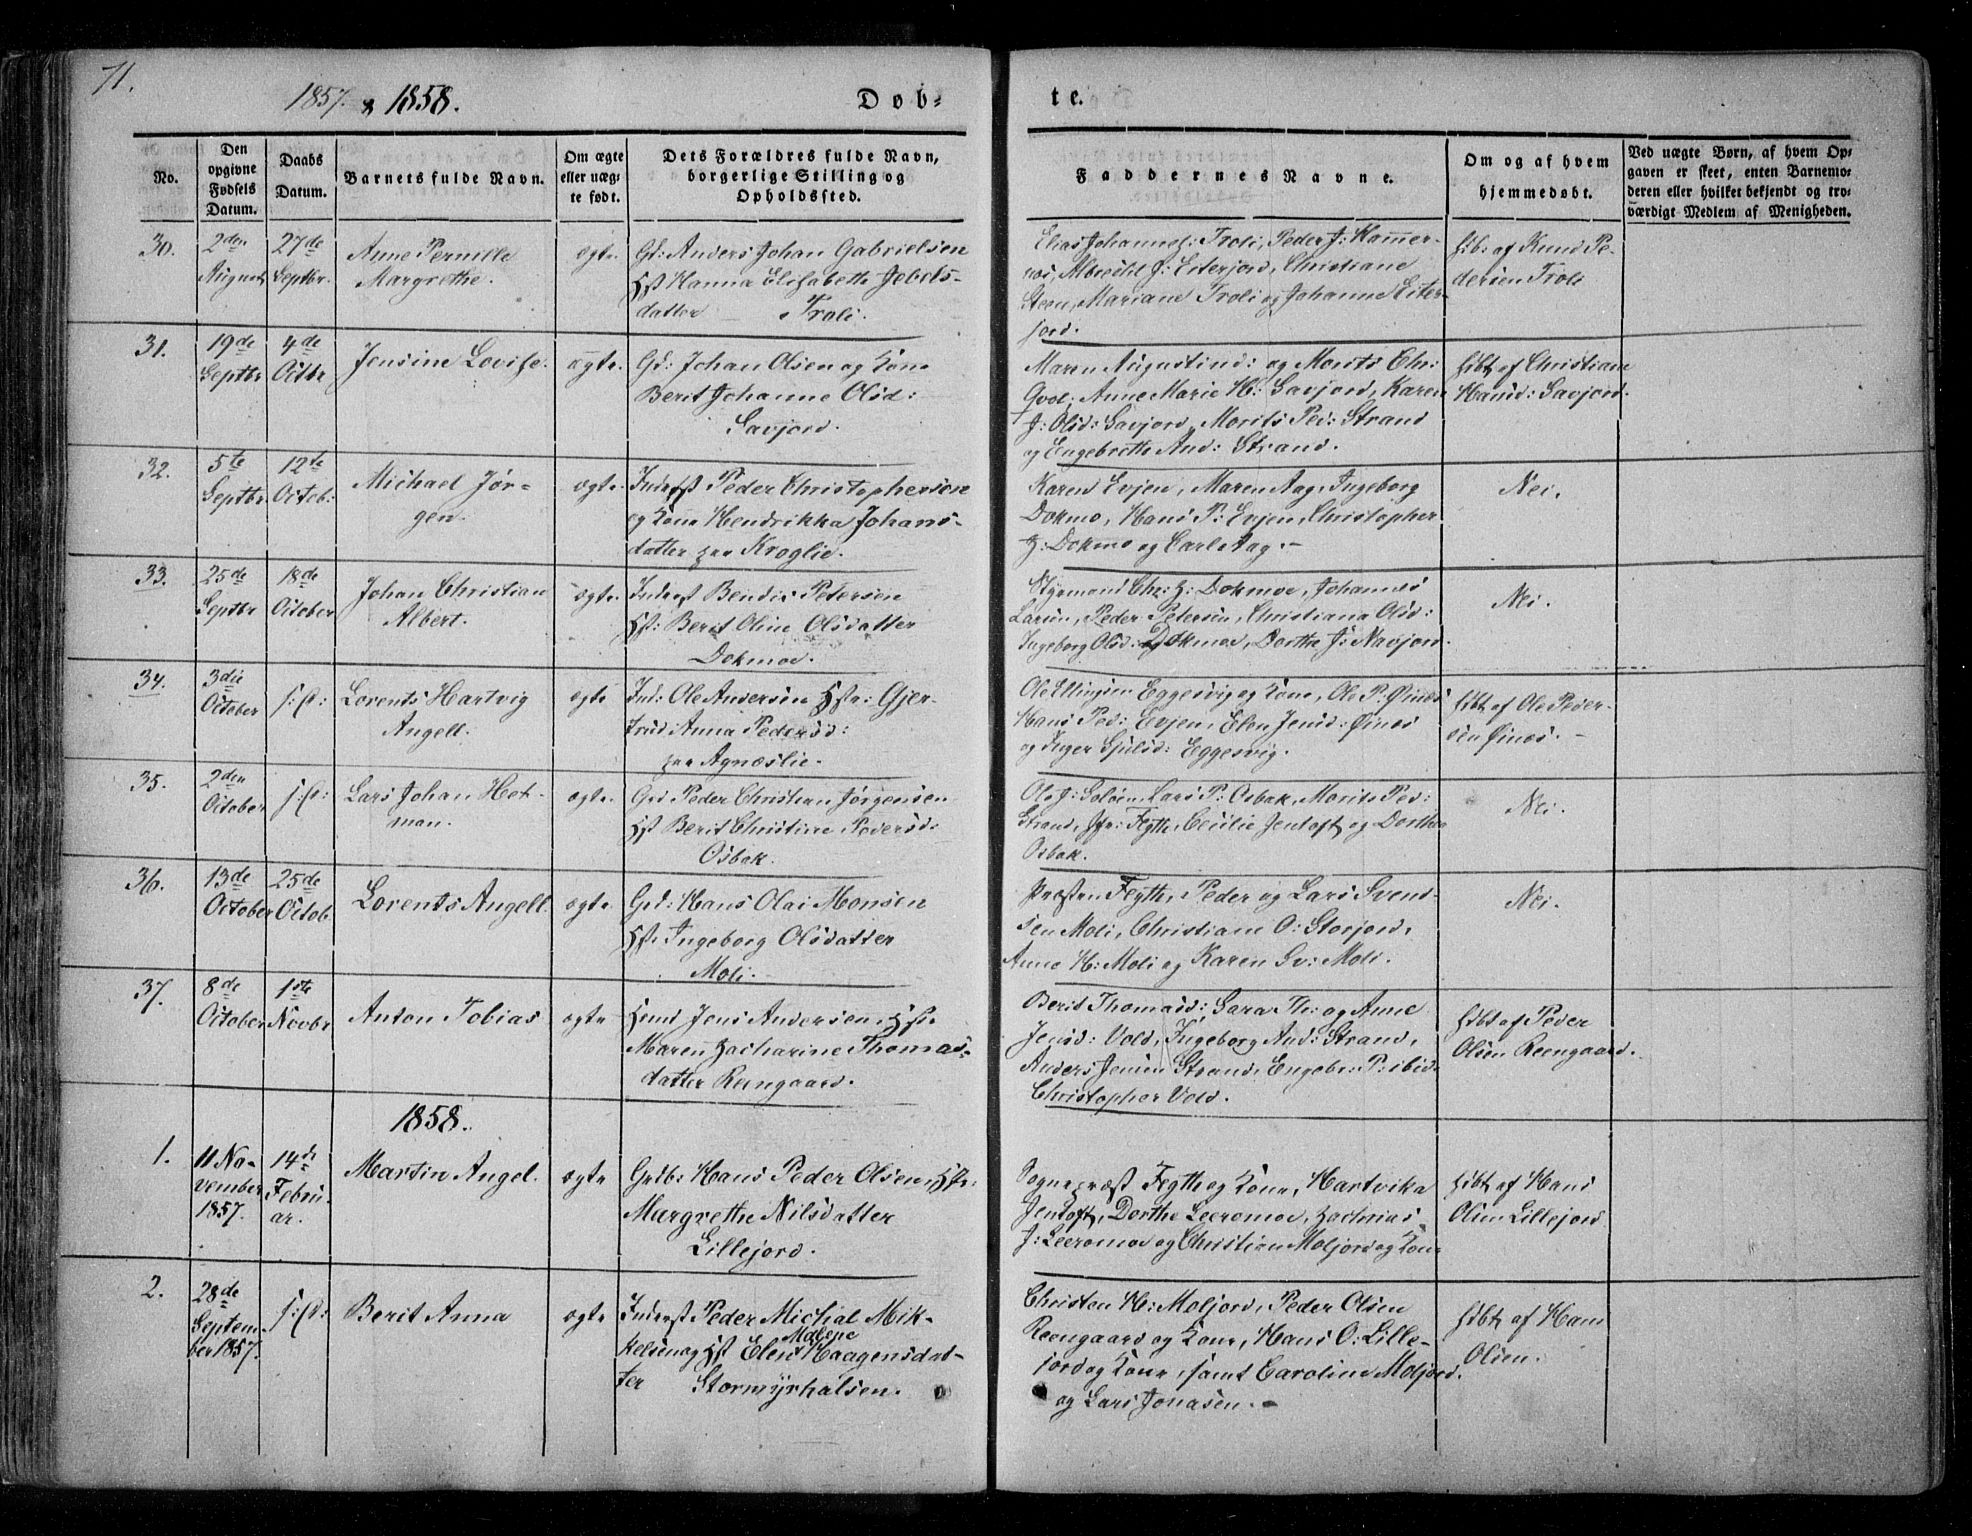 71.
1857. & 1858.
Døb-
te.
No.
Den opgivne Fødsels Datum.
Daabs Datum.
Barnets fulde Navn.
Om ægte eller uægte født.
Dets Forældres fulde Navn, borgerlige Stilling og Opholdssted.
Faddernes Navne.
Om og af hvem hjemmedøbt.
Ved uægte Børn, af hvem Opgaven er skeet, enten Barnemoderen eller hvilket bekjendt og troværdigt Medlem af Menigheden.
30.
2den August
27de Septbr.
Anne Pernille
Margrethe.
ægte.
Gd: Anders Johan Gabrielsen
Hst Hanna Elisabeth Jebels-
datter — Troli.
Elias Johannes: Troli, Peder J: Hammer-
næs, Albrecht J: Eiterjord, Christiane
Steen, Mariane Troli og Johanne Eiter-
jord.
hjb: af Knud Pe-
dersen Troli
31.
19de Septbr
4de Octbr
Jensine Lovise.
ægte.
Gd: Johan Olsen og Kone
Berit Johanne Olsd:
Savjord.
Maren Augustind: og Morits Chr:
Qvol; Anne Marie H: Savjord, Karen
J: Olsd: Savjord, Morits Ped: Strand
og Engebrethe And: Strand.
hjbt af Christiane
Hansd: Savjord.
32.
5te Septbr
12te Octob:
Michael Jør-
gen.
ægte.
Inderst Peder Christophersen
og Kone Hendrikka Johans-
datter paa Kroglie.
Karen Evjen, Maren Aag, Ingeborg
Dokmo, Hans P: Evjen, Christopher
Z: Dokmo og Carl Aag. –
Nei.
33.
25de Septbr
18de October
Johan Christian
Albert.
ægte.
Inderst Bendix Petersen
Hst: Berit Oline Olsdatter
Dokmoe.
Styrmand Chr: Z: Dokmoe, Johannes
Larsen, Peder Petersen, Christiana Olsd:
Ingeborg Olsd: Dokmoe, Dorthe J: Navjord.
Nei.
34.
3die October
s: D:
Lorents Hartvig
Angell.
ægte
Ind: Ole Andersen Hstr: Gjer-
trud Anna Pedersd:
paa Agnæslie.
Ole Ellingsen Eggesvig og Kone, Ole P: Øines
Hans Ped: Evjen, Elen Jensd: Øines
og Inger Sjulsd: Eggesvig.
hjbt af Ole Peder-
sen Øines. –
35.
2den October
s: D:
Lars Johan Het-
man.
ægte.
Gd Peder Christian Jørgensen
Hst Berit Christine Pedersd.
Osbak.
Ole J: Soløen, Lars P: Osbak, Morits Ped:
Strand, Jfr: Fegth, Cecilie Jentoft og Dorthe
Osbak.
Nei.
36.
13de October
25de Octob.
Lorents Angell.
ægte.
Gd: Hans Olai Monsen
Hst. Ingeborg Olsdatter
Moli.
Præsten Fegth, Peder og Lars Svend-
sen Moli, Christiane O: Storjord,
Anne H: Moli og Karen Sv: Moli.
Nei.
37.
8de October
1ste Novbr
Anton Tobias
ægte
Hmd Jens Andersen, Hst.
Maren Zacharine Thomas-
datter Reengaard.
Berit Thomasd: Sara Th: og Anne
Jensd: Vold, Ingeborg And: Strand,
Anders Jensen Strand, Engebr:
Christopher Vold.
hjbt af Peder
Olsen Reengaard.
1858.
1.
11 November 1857.
14de Februar.
Martin Angel.
ægte
Grdb: Hans Peder Olsen, Hstr:
Margrethe Nilsdatter
Lillejord.
Sognepræst Fegth og Kone, Hartvika
Jentoft, Dorthe Leeromoe, Zachrias
J: Leeromoe og Christian Moljord og Kone
hjbt af Hans
Olsen Lillejord
2.
28de September 1857.
s: D:
Berit Anna
ægte
Inderst Peder Michal Mik-
kelsen og Hst Elen Malene Haagensdat-
ter Stormyrhalsen.
Christen H: Moljord, Peder Olsen
Reengaard og Kone, Hans O: Lille-
jord og Kone, samt Caroline Moljord.
og Lars Jonasen. –
hjbt af Hans
Olsen.